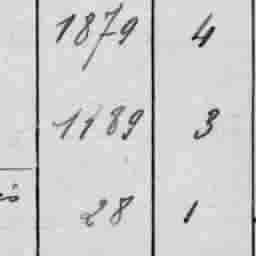 1879 4
1189 3
28 1